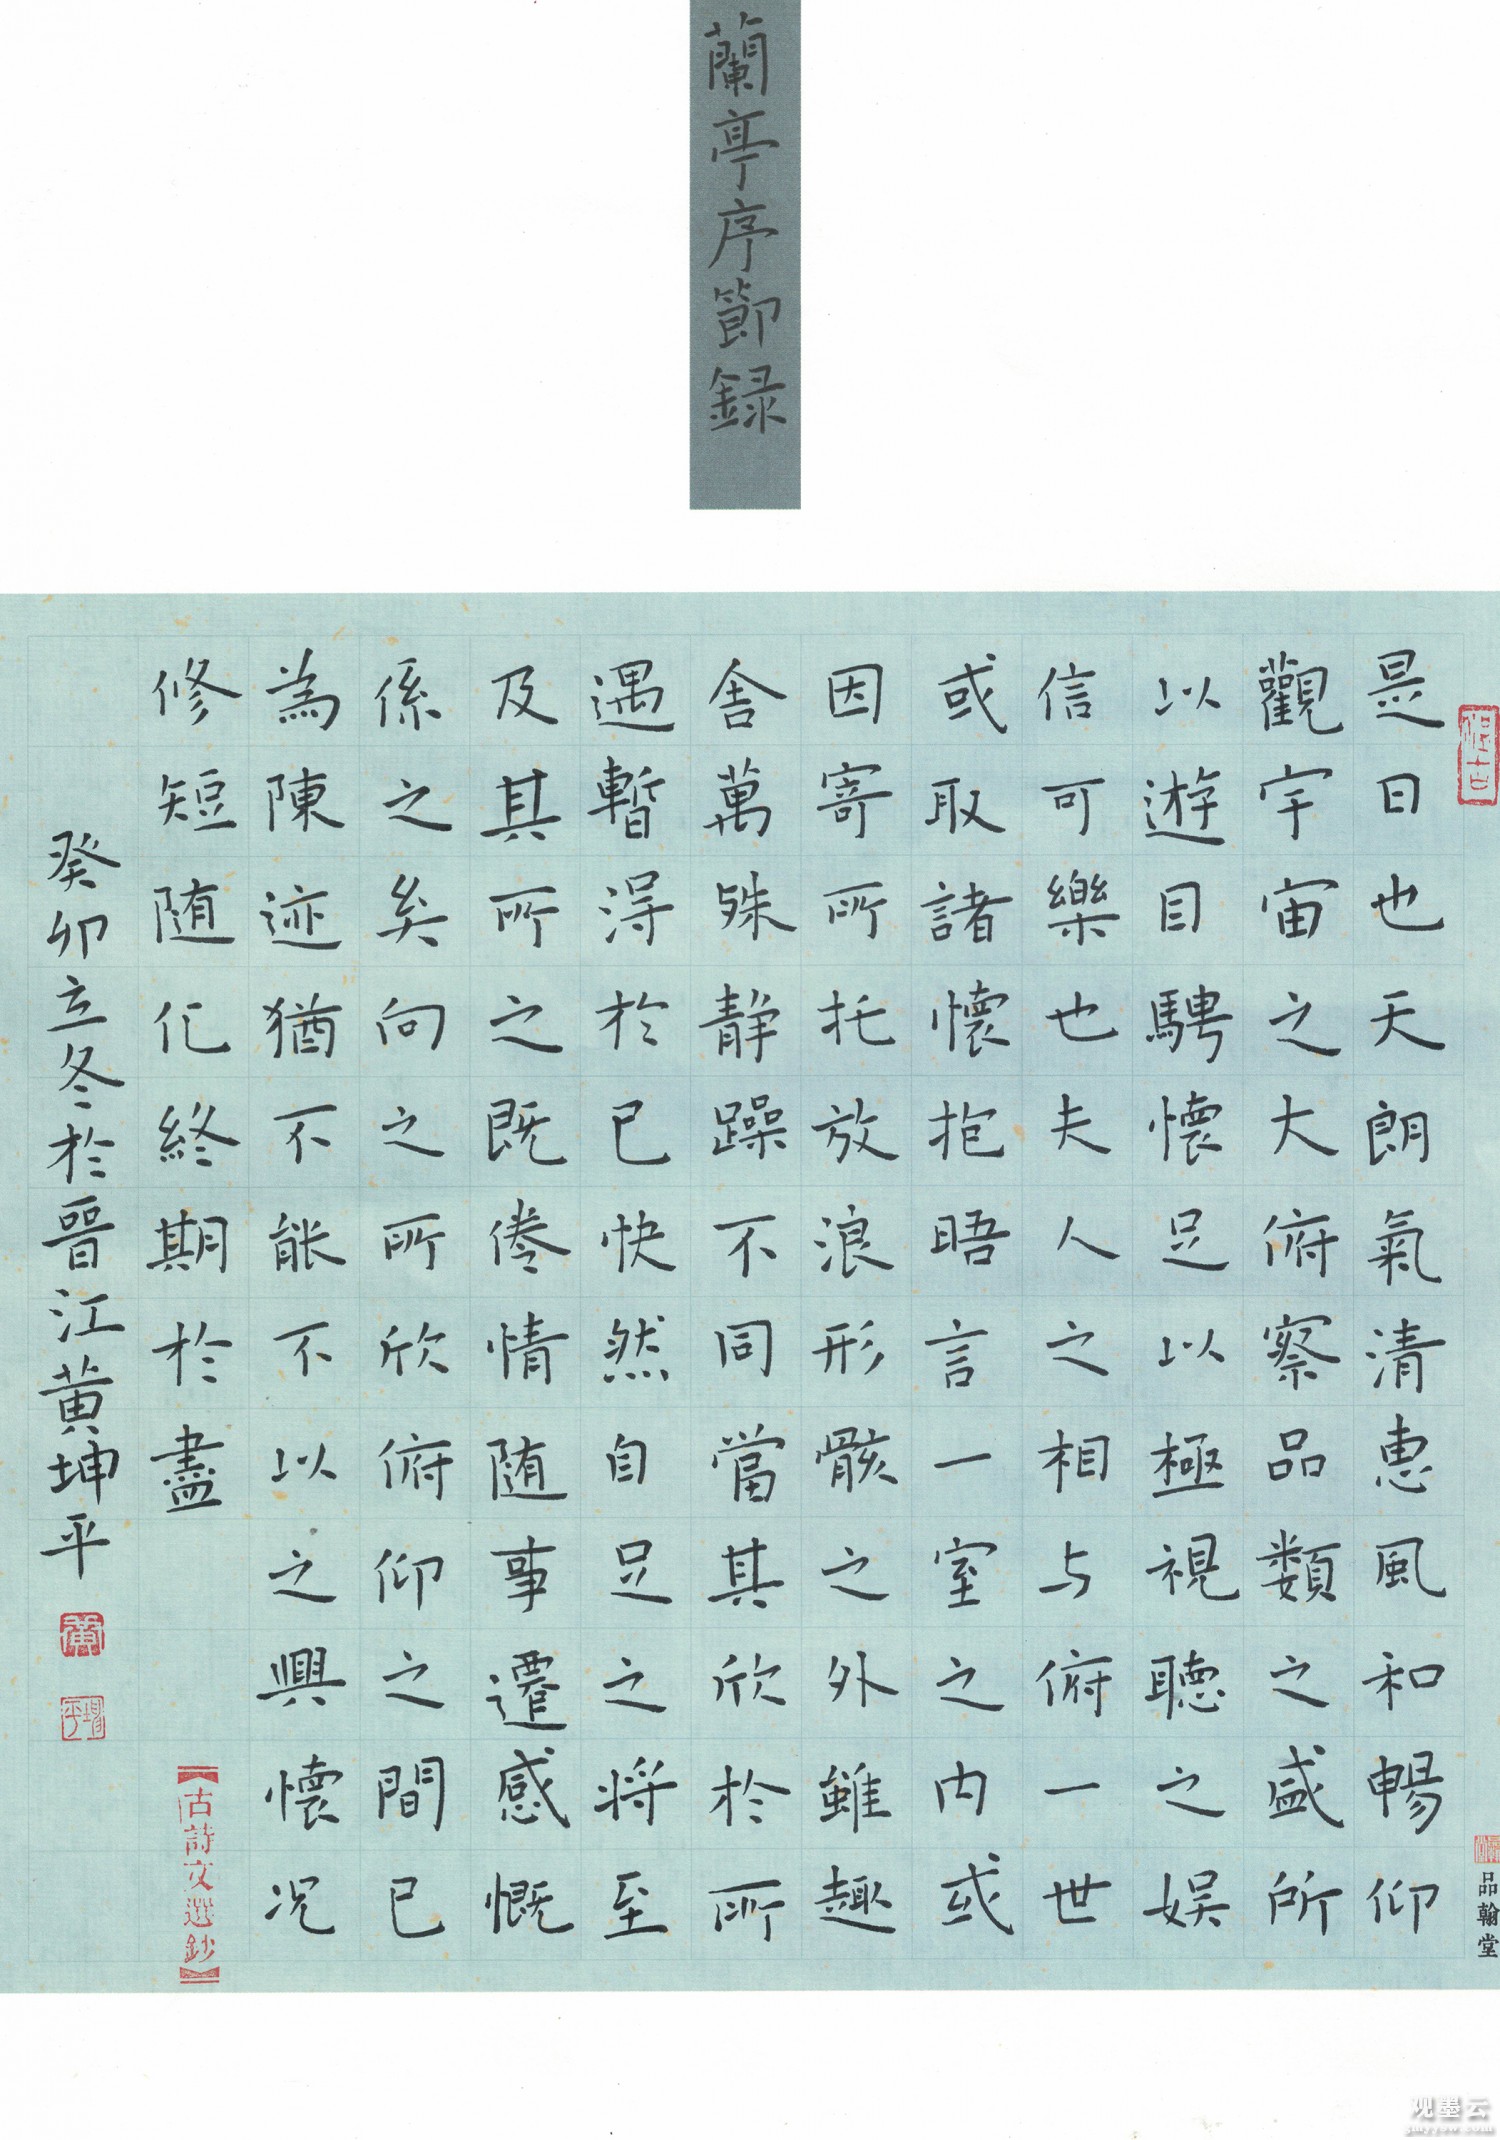 蘭亭序節録
是日也天朗氣清惠風和暢仰
觀宇宙之大俯察品類之盛所
以遊目騁懷足以極視聽之娱
信可樂也夫人之相与俯一世
或取諸懷抱晤言一室之内或
因寄所托放浪形骸之外雖趣
舍萬殊静躁不同當其欣於所
遇暫得於己快然自足之将至
及其所之既倦情随事遷感慨
係之矣向之所欣俯仰之間已
為陳迹猶不能不以之興懷况
修短随化終期於盡
癸卯立冬於晉江黄坤平
黄
坤平
【古詩文選鈔】
品翰堂
观墨云